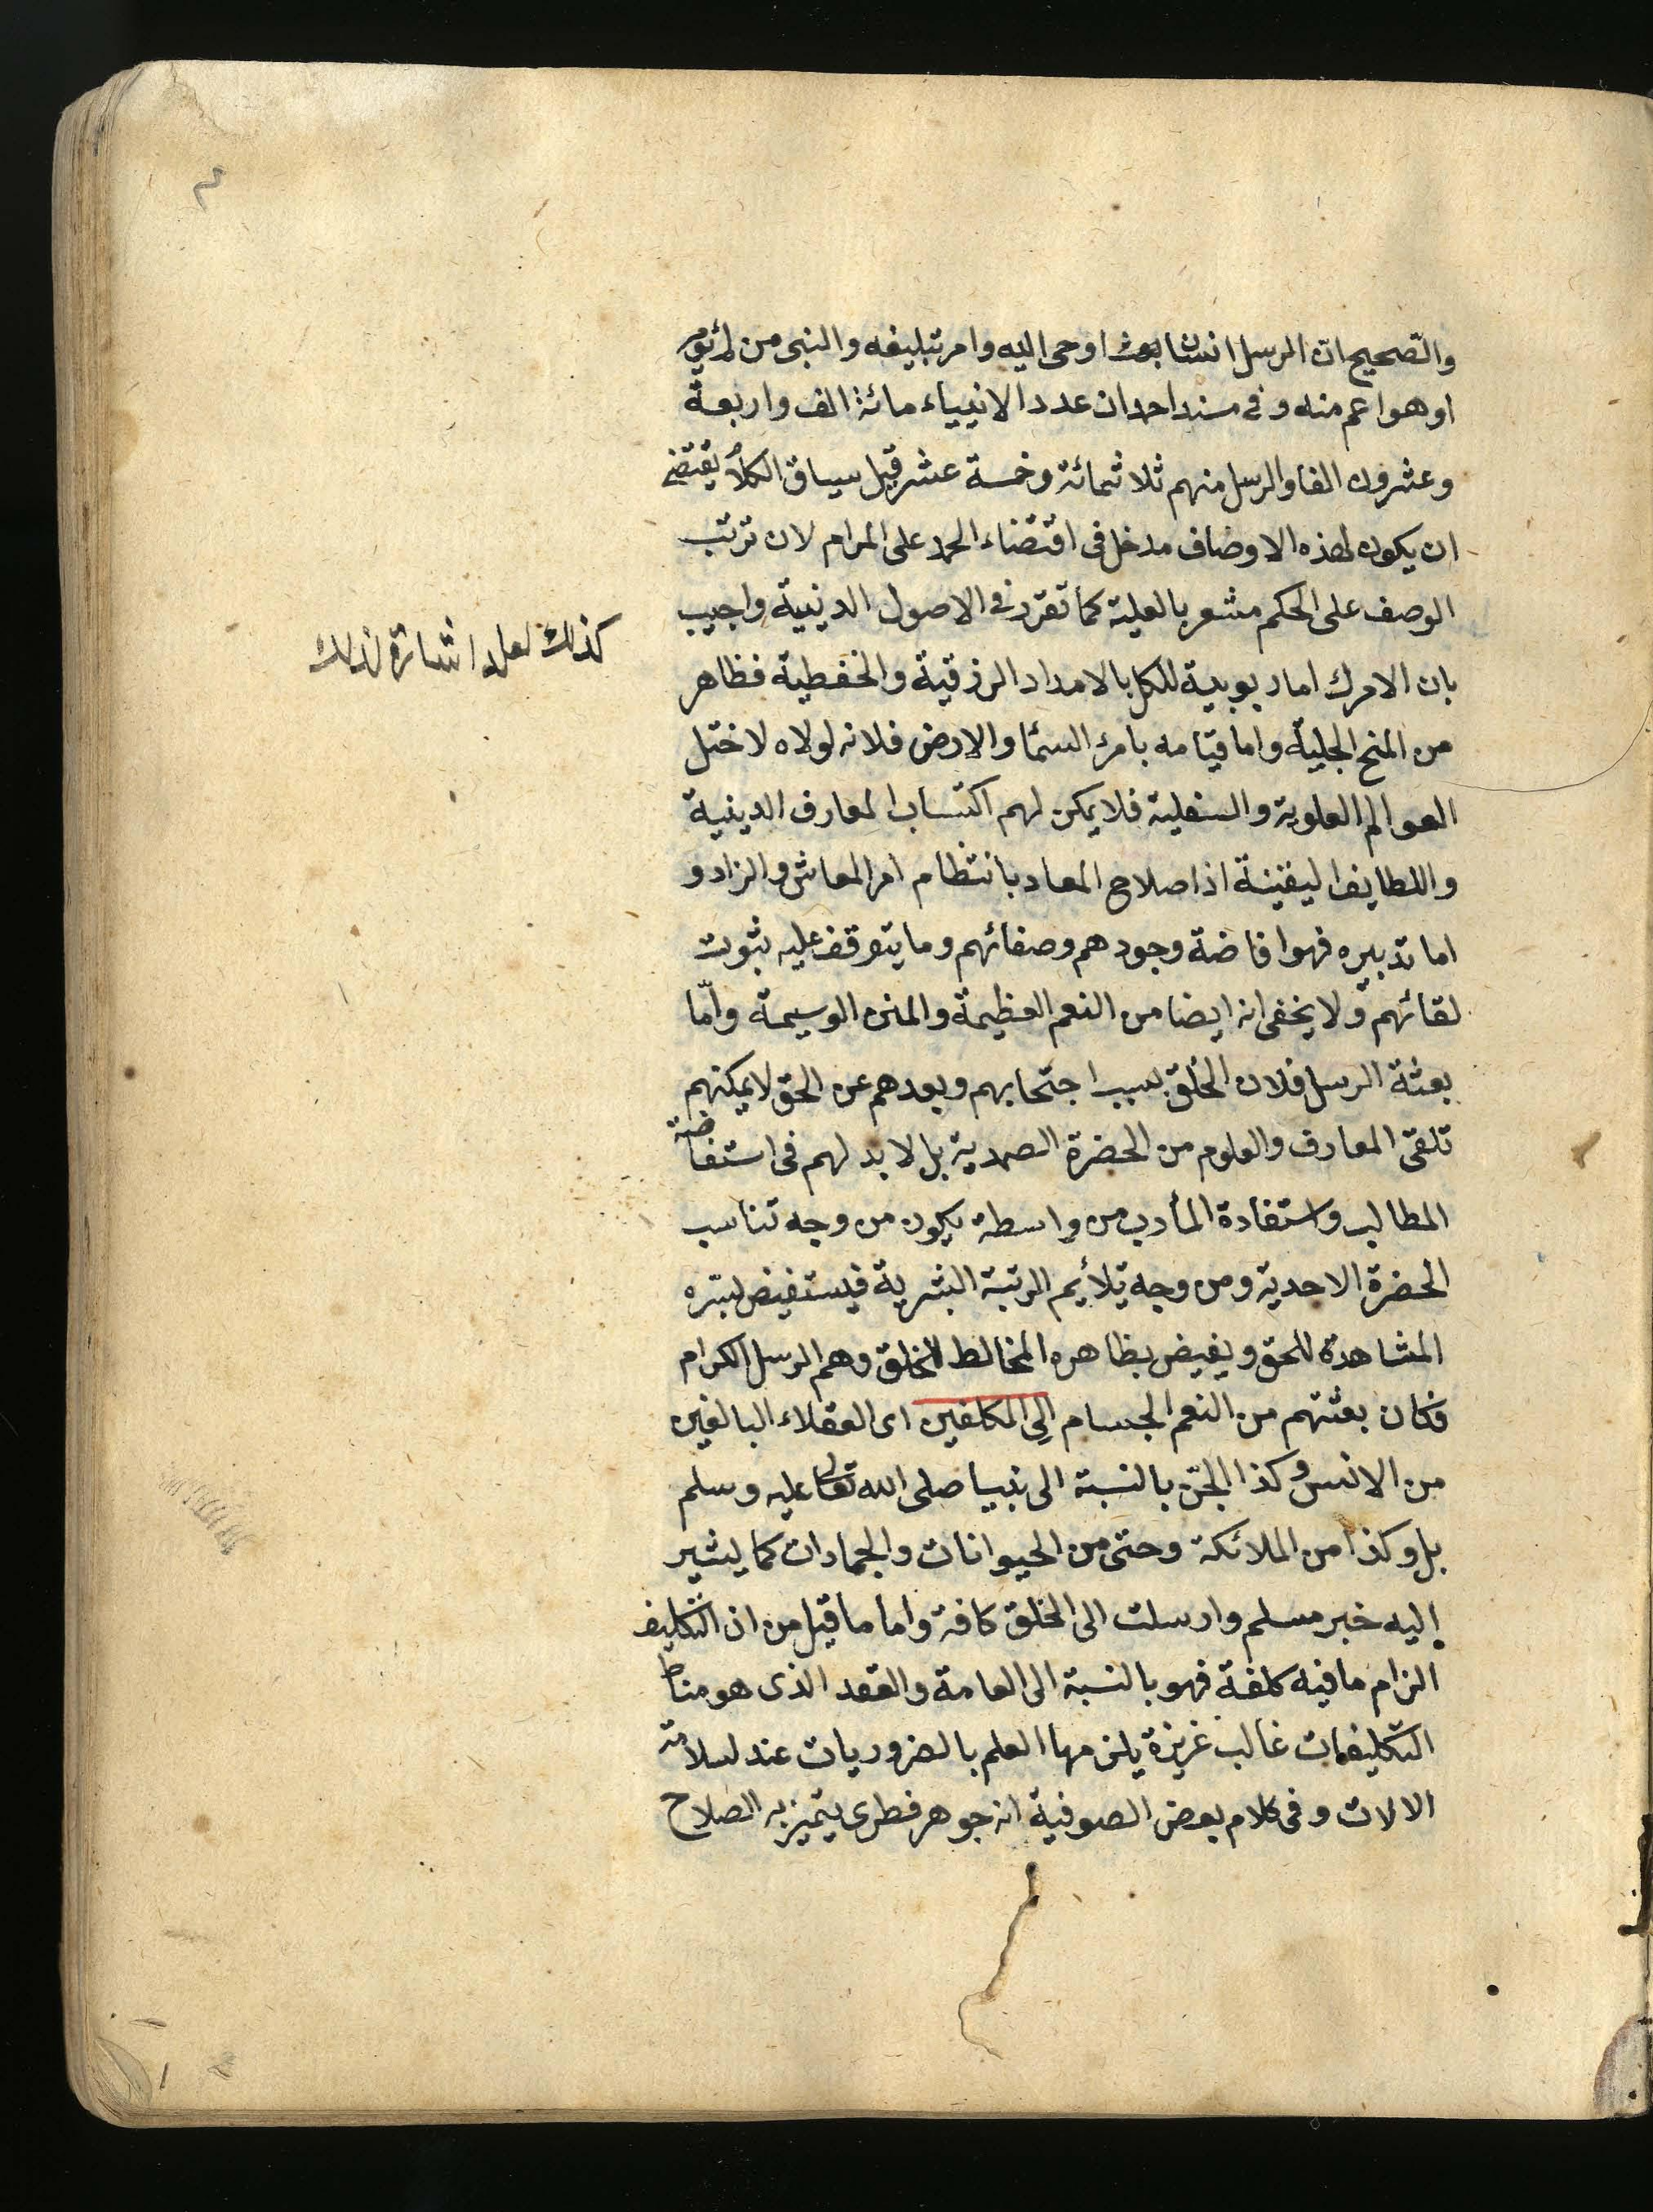 والصحيح ان الرسل انسان بعث اوحى اليه وامر تبليغه والنبى من لم يؤمر
او هو اعم منه وفى مسند احمد ان عدد الانبياء مائة الف واربعة
وعشرون الفا والرسل منهم ثلاثمائة وخمسة عشر قيل سياق الكلام يقتضى
ان يكون لهذه الاوصاف مدخل فى اقتضاء الحمد على المرام لان ترتب
الوصف على الحكم مشعر بالعلية كما تقرر فى الاصول الدينية واجيب
بان الامر ك اما ربوبية للكل بالامداد الرزقية والحفظية فظاهر
من المنح الجلية واما قيامه بامر السما والارض فلانه لولاه لاختل
العوالم العلوية والسفلية فلا يمكن لهم اكتساب المعارف الدينية
واللطايف اليقينية اذا صلاح المعاد بانتظام امر المعاش والزاد و
اما تدبيره فهو افاضة وجودهم وصفائهم وما يتوقف عليه ثبوت
لقائهم ولا يخفى انه ايضا من النعم العظيمة والمنن الوسيمة وامّا
بعثة الرسل فلان الخلق بسبب احتجابهم وبعدهم عن الحق لا يمكنهم
تلقى المعارف والعلوم من الحضرة الصمدية بل لا بد لهم فى استفاضة
المطالب واستفادة المأرب من واسطة يكون من وجه تناسب
الحضرة الاحدية ومن وجه يلأيم الرتبة البشرية فيستفيض بسره
المشاهدة للحق ويفيض بظاهره المخالط للخلق وهم الرسل الكرام
فكان بعثتهم من النعم الجسام الى المكلفين اى العقلاء البالغين
من الانس وكذا الجن بالنسبة الى نبينا صلى الله تعالى عليه وسلم
بل وكذا من الملائكة وحتى من الحيوانات والجمادات كما يشير
اليه خبر مسلم وارسلت الى الخلق كافة واما ما قيل من ان التكليف
الزام ما فيه كلفة فهو بالنسبة الى العامة والعقد الذى هو مناط
التكليفات غالب غريزة يلزمها العلم بالضروريات عند سلامة
الالات وفى كلام بعض الصوفية انه جوهر فطرى يتميز به الصلاح
كذلك لعله اشارة لذلك